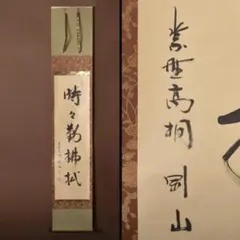 時々勤拂拭
紫野高桐 剛山